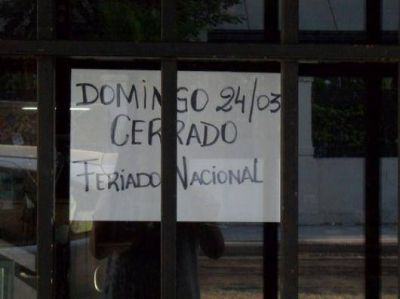 DOMINGO 24/03
CERRADO
FERIADO NACIONAL